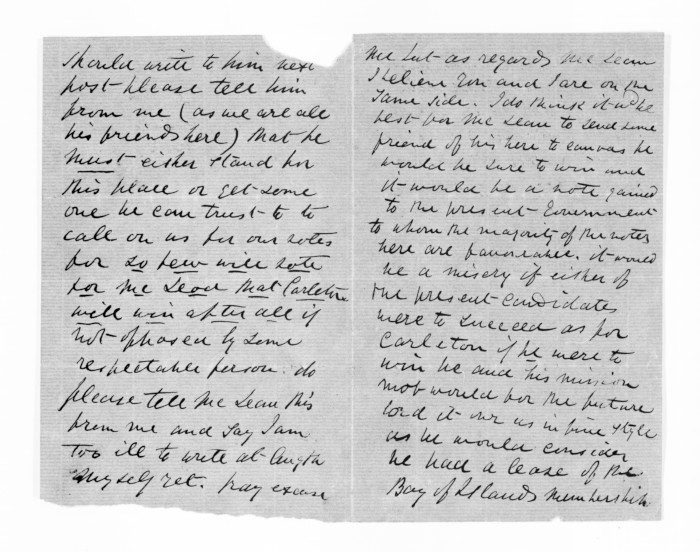 should write to him next
post please tell him
from me (as we are all
his friends here) that he
must either stand for
this place or get some
one he can trust to to
call on us for our votes
for so few will vote
for Mc Leod that Carleton
will win after all if
not opposed by some
respectable person. do
please tell Mc Lean this
from me and say I am
too ill to write at length
myself yet. pray excuse
me but as regards Mc Lean
I believe you and I are on the
same side. I do think it wd be
best for Mc Lean to send some
friend of his here to canvas he
would be sure to win and
it would be a vote gained
to the present Government
to whom the majority of the votes
here are favorable. it would
be a misery if either of
the present candidates
were to succeed as for
Carleton if he were to
win he and his mission
mob would for the future
lord it over us in fine style
as he would consider
he had a lease of the
Bay of Islands membership.